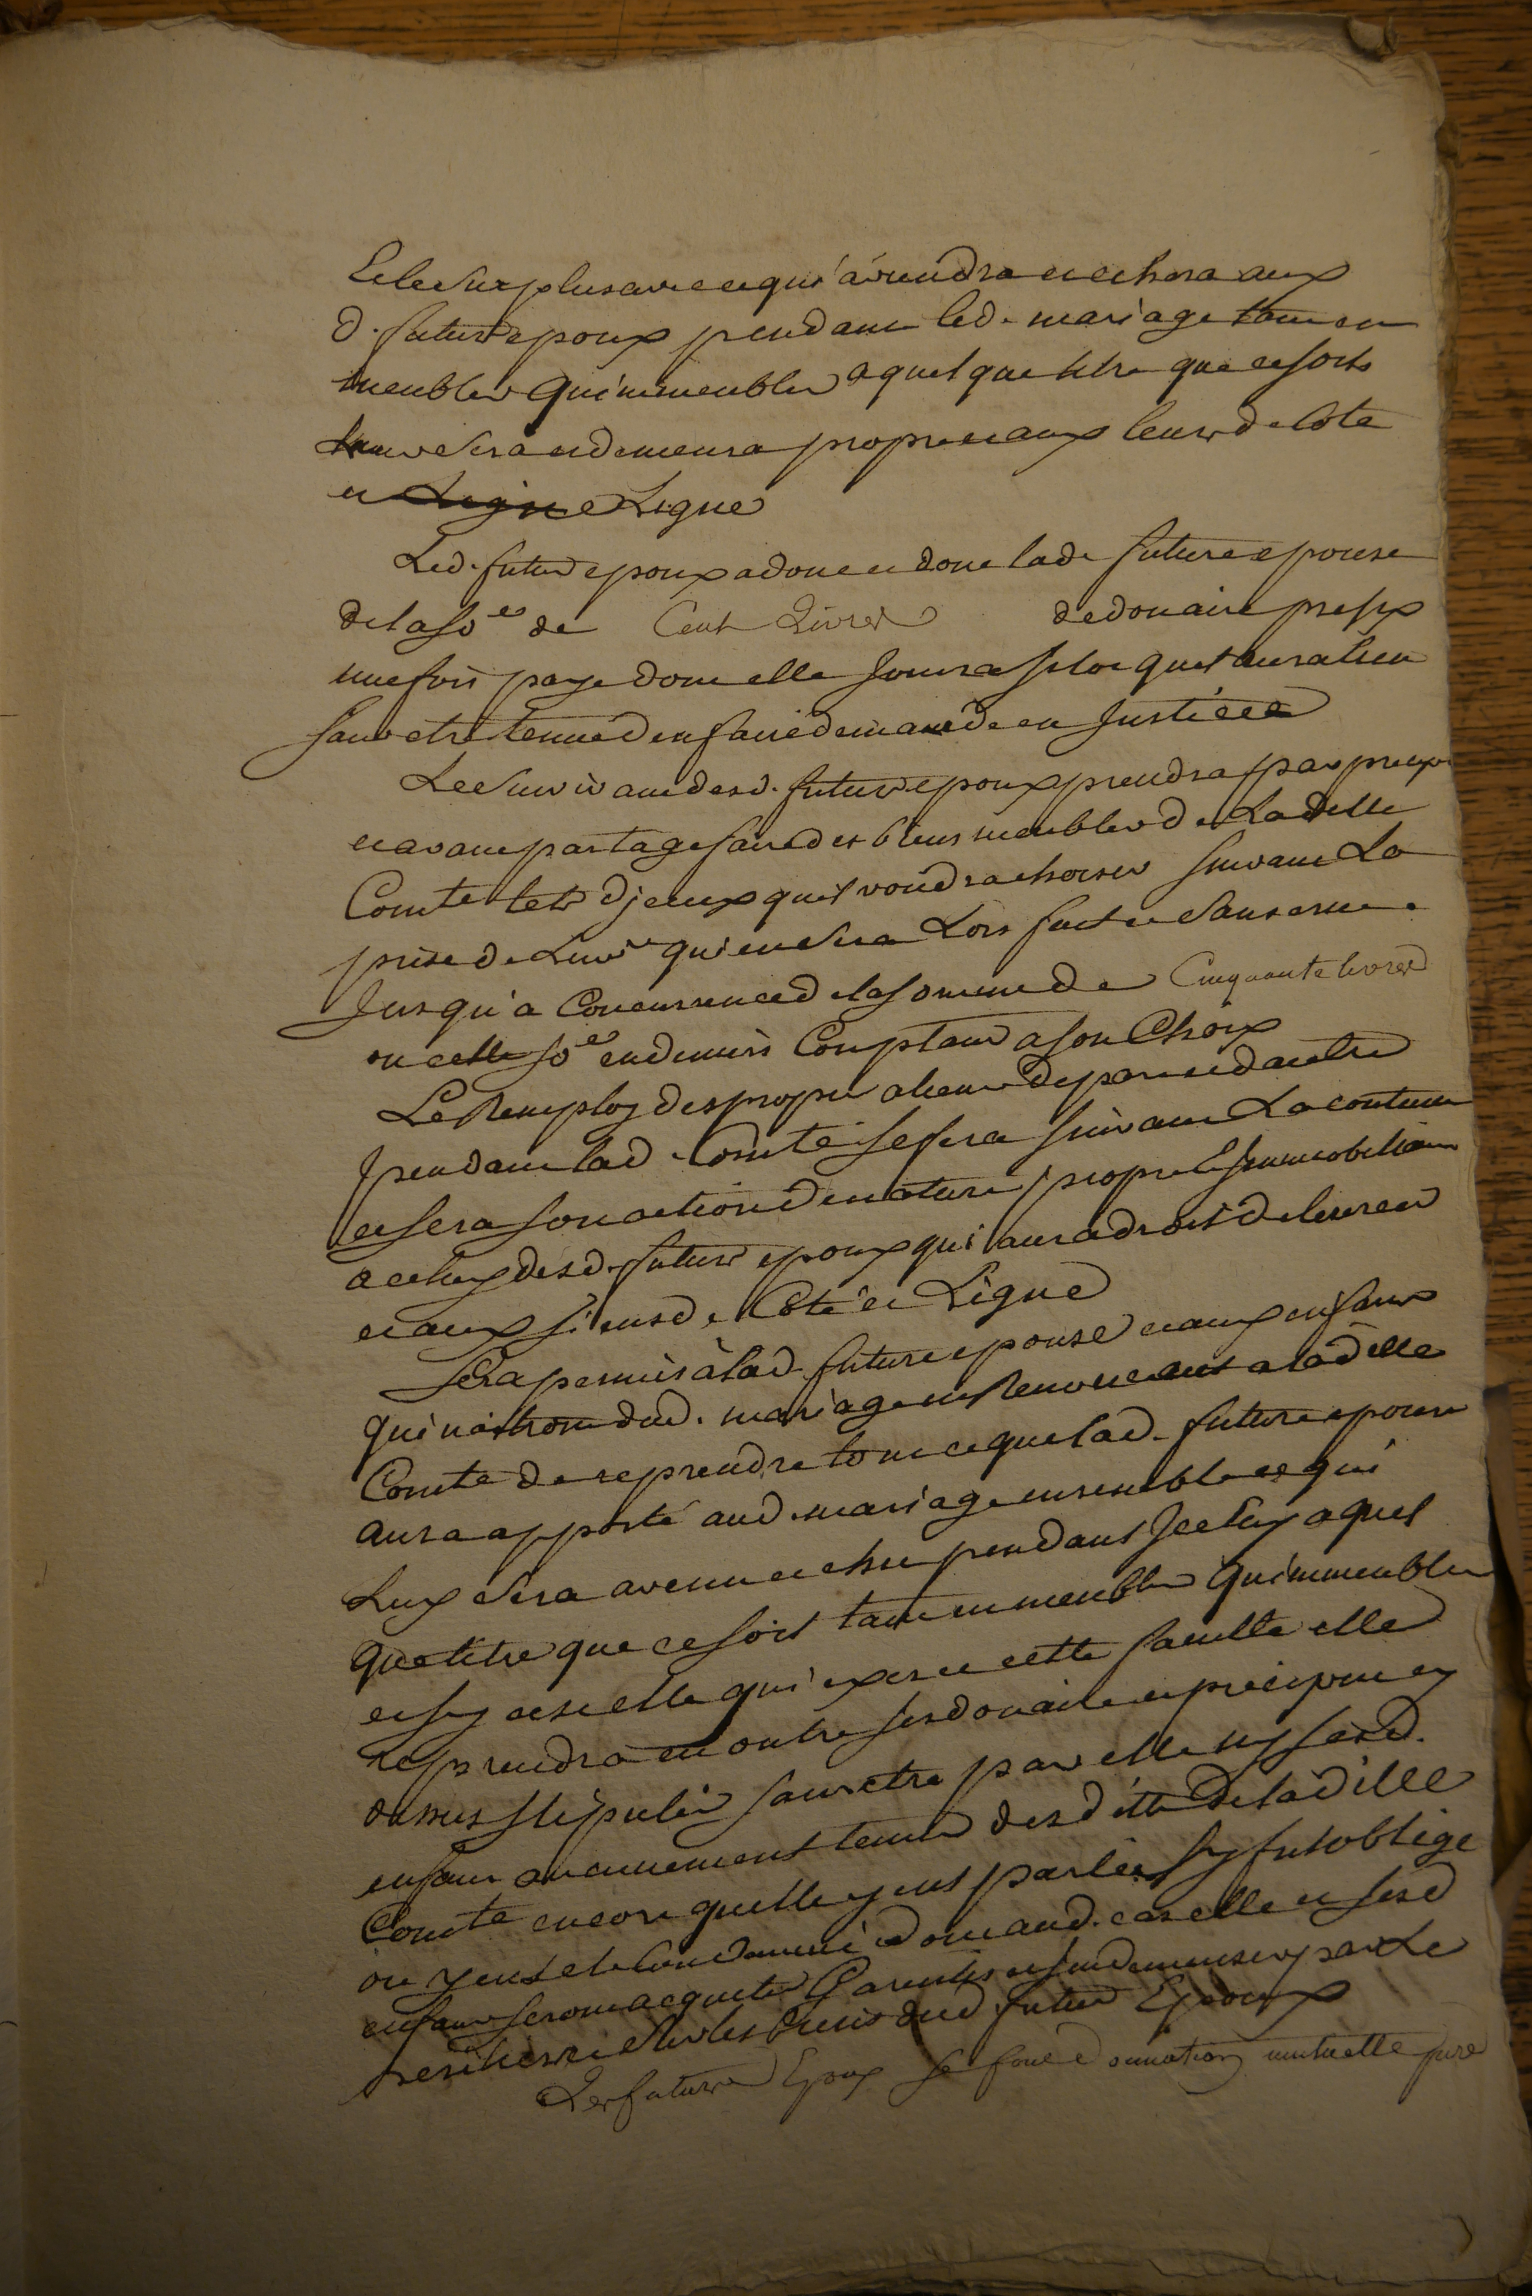 Et le surplus avec ce qui aviendra et echera aux
d. futurs epoux pendant led. mariage tant en
meubles qu'immeubles a quelque titre que ce soit
sera et demeura propre et aux leurs de coté
et Ligne Ligne
Led. futur epoux a doué et doue lad. future epouse
de la sô.e de Cent Livres de douaire prefix
une fois payé dont elle jouira sitôt quil aura lieu
sans etre tenue d'en faire demande en Justice
Le survivant desd. futurs epoux prendra par preciput
et avant partage faire des biens meubles de Ladelle
Com.te tels d'jceux quil voudra choisir suivant La
prisée de Linv.re qui en sera Lors faite et sans crue
Jusqu'a Concurrence de la somme de Cinquante livres
ou cette sô.e en deniers Comptans a son Choix
Le Remploy des propres alienés de part et d'autre
pendant lad. Com.té se fera suivant La coutume
et sera son action de nature propre et Immobiliaire
a celuy desd. futurs epoux qui aura droit de
et aux siens de Coté et Ligne
Sera permis à lad. future epouse et aux enfans
qui naitront dud. mariage en Renonceant a ladelle
Com.té de reprendre tout ce que lad. future epouse
aura apporté aud. mariage ensemble ce qui
Luy sera avenu et echu pendant Jceluy a quel
que titre que ce soit tant en meubles qu'immeubles
et sy cest elle qui exerce cette faculté elle
reprendra en outre ses douaire et preciput cy
dessus stipulés sans etre par elle ny sesd.
enfans aucunement tenus des dettes de ladelle
Com.té encore quelle y eut parlée sy fut obligé
ou y eut eté Condamnée dont aud. cas elle et sesd
enfans seront acquités Garantis et indemnisés par Le
heritiers et sur les biens dud. futur Epoux
Les futurs Epoux se font donnation mutuelle pure